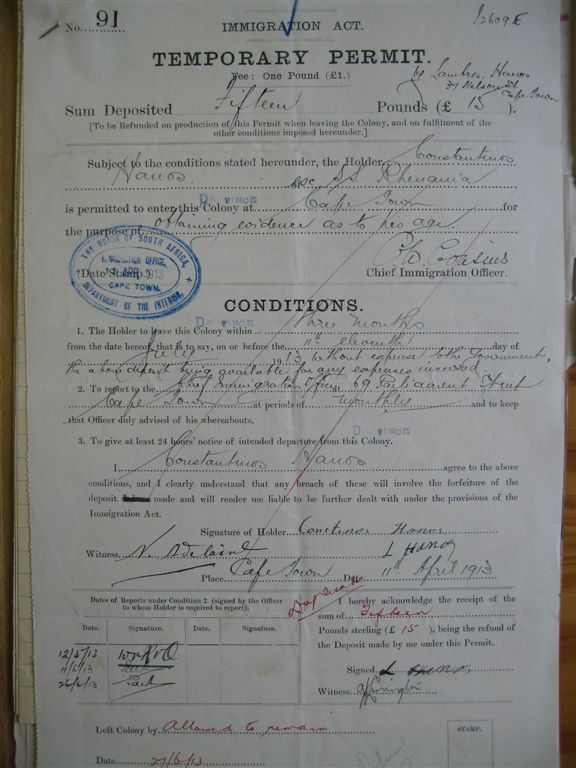 No. 91
12609E
IMMIGRATION ACT.
TEMPORARY PERMIT.
Fee: One Pound (£1.)
by Lambros Hanos
37 Nelson St
Cape Town
Sum Deposited Fifteen Pounds (£ 15 ).
[To be Refunded on production of this Permit when leaving the Colony, and on fulfilment of the
other conditions imposed hereunder.]
Subject to the conditions stated hereunder, the Holder Constantinos
Hanos S.S. Rhenania
PROVINCE
is permitted to enter this Colony at Cape Town for
the purpose of obtaining evidence as to his age.
THE UNION OF SOUTH AFRICA,
IMMIGRATION OFFICE,
APR 1913
CAPE TOWN.
DEPARTMENT OF THE INTERIOR,
†Date Stamp.
Cousins
Chief Immigration Officer.
CONDITIONS.
PROVINCE
1. The Holder to leave this Colony within three months
from the date hereof, that is to say, on or before the 11th eleventh day of
July 1913 without expense to the Government,
the above deposit being available for any expenses incurred
2. To report to the Chief Immigration Officer 69 Parliament Street
Cape Town at periods of monthly and to keep
that Officer duly advised of his whereabouts.
PROVINCE
3. To give at least 24 hours' notice of intended departure from this Colony.
I, Constantinos Hanos agree to the above
conditions, and I clearly understand that any breach of these will involve the forfeiture of the
deposit made and will render me liable to be further dealt with under the provisions of the
Immigration Act.
Signature of Holder Constinos Hanos
Witness L Hanos
Place Cape Town Date 11th April 1913
Duplicate
Dates of Reports under Condition 2 (signed by the Officer
to whom Holder is required to report).
Date. Signature. Date. Signature.
12/5/13
11/6/13
26/6/13
I hereby acknowledge the receipt of the
sum of Fifteen
Pounds sterling (£ 15 ), being the refund of
the Deposit made by me under this Permit.
Signed L Hanos
Witness
Left Colony by Allowed to remain
STAMP.
Date 27/6/13